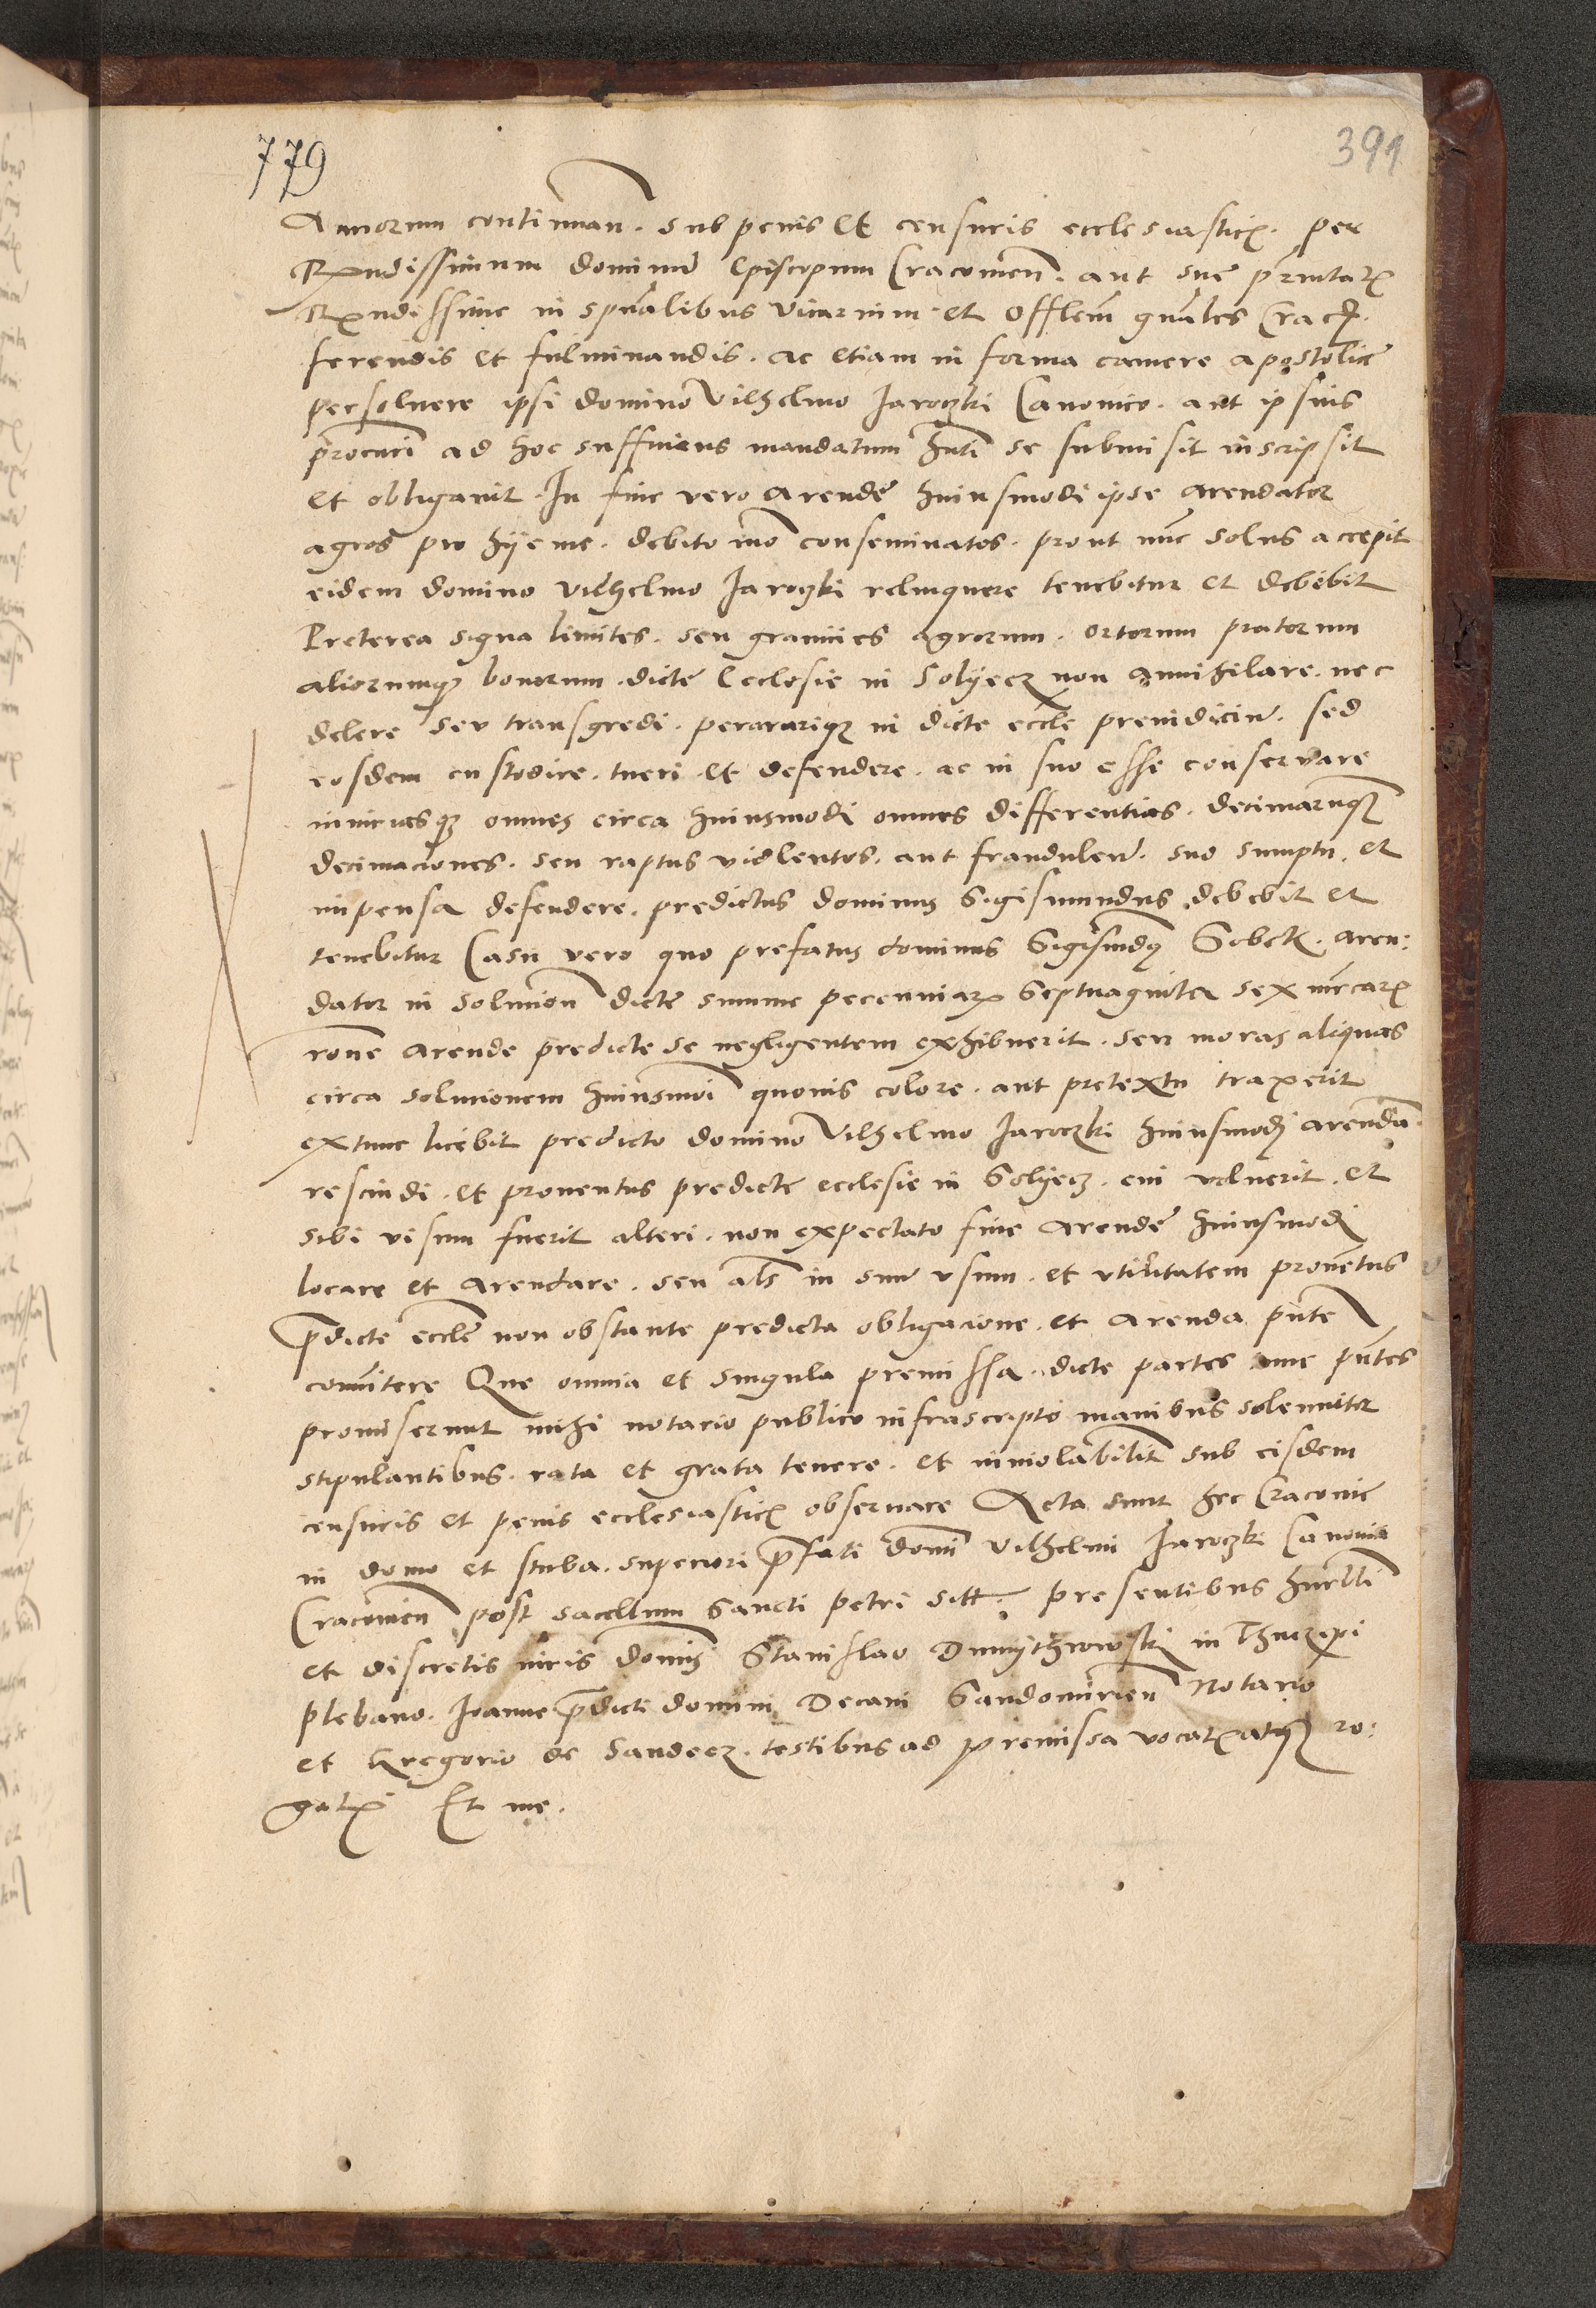 779
391
Annorum continuan. sub penis et censuris ecclesiasticis. per
Rndissimum dominum Episcopum Cracouien. aut sue
Rndissime in spualibus vicarium et Offlem gnalem Crac
ferendis et fulminandis. ac etiam in forma camere apostolice
persoluere ipsi domino Vilhelmo Jaroczki Canonico. aut ipsius
procuri ad hoc sufficiens mandatum hnti se submisit inscripsit
et obligauit. In fine vero arende huiusmodi ipse arendator
agros pro hyeme. debito mo conseminatos. prout nunc solus accepit
eidem domino Vilhelmo Jaroczki relinquere tenebitur et debebit
Preterea signa limites. seu granities agrorum. ortorum pratorum
aliorumque bonorum. dicte Ecclesie in Solyecz non annihilare. nec
delere seu transgredi. perararique in dicte eccle preiudicium. sed
eosdem custodire. tueri. et defendere. ac in suo esse conseruare
omnes circa huiusmodi omnes differentias. decimarumque
decimaciones. seu raptus violentos. aut fraudulen. suo sumptu. et
impensa defendere. predictus dominus Sigismundus. debebit et
tenebitur Casu vero quo prefatus dominus Sigismundus aren:
dator in solucion dicte summe pecuniarum Septuaginta sex marcarum
rone arende predicte se negligentem exhibuerit. seu moras aliquas
circa solucionem huiusmoi quouis colore. aut pretextu traxerit
extunc licebit predicto domino Vilhelmo Jaroczki huiusmodi arendam.
rescindi. et prouentus predicte ecclesie in Solyecz. cui voluerit. et
sibi visum fuerit alteri. non expectato fine arende huiusmodi
locare et arendare. seu als in suum vsum. et vtilitatem prouentus
pdicte eccle non obstante predicta obligacione. et arenda pnte
conuertere Que omnia et singula premissa. dicte partes pntes
promiserunt mihi notario publico infrascripto manibus solenniter
stipulantibus. rata et grata tenere. et inuiolabiliter sub eisdem
censuris et penis ecclesiasticis obseruare Acta sunt hec Cracouie
in domo et stuba. superiori pfati domi Vilhelmi Jaroczki Canonici
Cracouien post sacellum Sancti Petri sitt. presentibus
et discretis viris dominis Stanislao Dmythrowski in
plebano. Joanne pdicti domini Decani Sandomirien Notario
et Gregorio de Sandecz. testibus ad premissa vocatis atque ro:
gatis Et me.